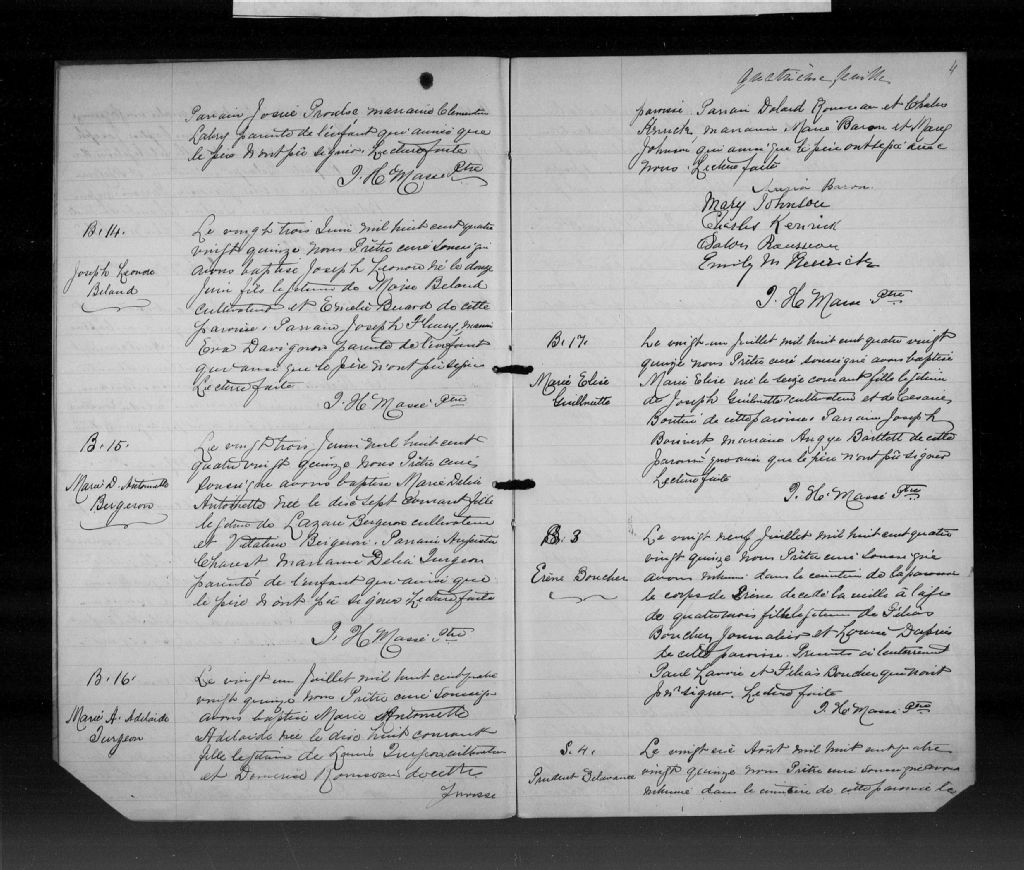 Parrain Josué marraine Clementine
Labry parents de l'enfant qui ainsi que
le père n'ont pu signer. Lecture faite
J. H. Massé Ptre
B. 14.
Joseph Leonore
Beland
Le vingt trois Juin mil huit cent quatre
vingt quinze nous Prêtre curé soussigné
avons baptisé Joseph Leonore né le douze
Juin fils légitime de Beland
cultivateur et Emélie de cette
paroisse. Parrain Joseph Fleury marraine
Eva Davignon parents de l'enfant
qui ainsi que le père n'ont pu signer
Lecture faite
J. H. Massé Ptre
B. 15.
Marie D. Antoinette
Bergeron
Le vingt trois Juin mil huit cent
quatre vingt quinze nous Prêtre curé
soussigné avons baptisé Marie Delia
Antoinette née le dix sept courant fille
légitime de Lazare Bergeron cultivateur
et Bergeron. Parrain
Charest marraine Delia Turgeon
parents de l'enfant qui ainsi que
le père n'ont pu signer Lecture faite
J. H. Massé Ptre
B. 16.
Marie A. Adelaide
Turgeon
Le vingt un Juillet mil huit cent quatre
vingt quinze nous Prêtre curé soussigné
avons baptisé Marie Antoinette
Adelaide née le dix huit courant
fille légitime de Louis Turgeon cultivateur
et Rousseau de cette
Paroisse
4
Quatrième feuille
paroisse. Parrain Rousseau et Charles
Kerrick marraine Marie Baron et Mary
Johnson qui ainsi que le père ont signé avec
nous. Lecture faite
Baron
Mary Johnson
Charles Kerrick
Rousseau
Emily M
J. H. Massé Ptre
B. 17.
Marie Elise
Guilmette
Le vingt un Juillet mil huit cent quatre vingt
quinze nous Prêtre curé soussigné avons baptisé
Marie Elise née le seize courant fille légitime
de Joseph Guilmette cultivateur et de
de cette paroisse. Parrain Joseph
Boisvert marraine de cette
paroisse qui ainsi que le père n'ont pu signer
Lecture faite
J. H. Massé Ptre
S. 3
Erène Boucher
Le vingt neuf Juillet mil huit cent quatre
vingt quinze nous Prêtre curé soussigné
avons inhumé dans le cimetière de la paroisse
le corps de Erène décédé la veille à l'age
de quatre mois fille légitime de Félias
Boucher Journalier et Louise
de cette paroisse. Presents à l'enterrement
Paul Lavoie et Félias Boucher qui n'ont
pu signer. Lecture faite
J. H. Massé Ptre
S. 4.
Prudent
Le vingt six Août mil huit cent quatre
vingt quinze nous Prêtre curé soussigné avons
inhumé dans le cimetière de cette paroisse le